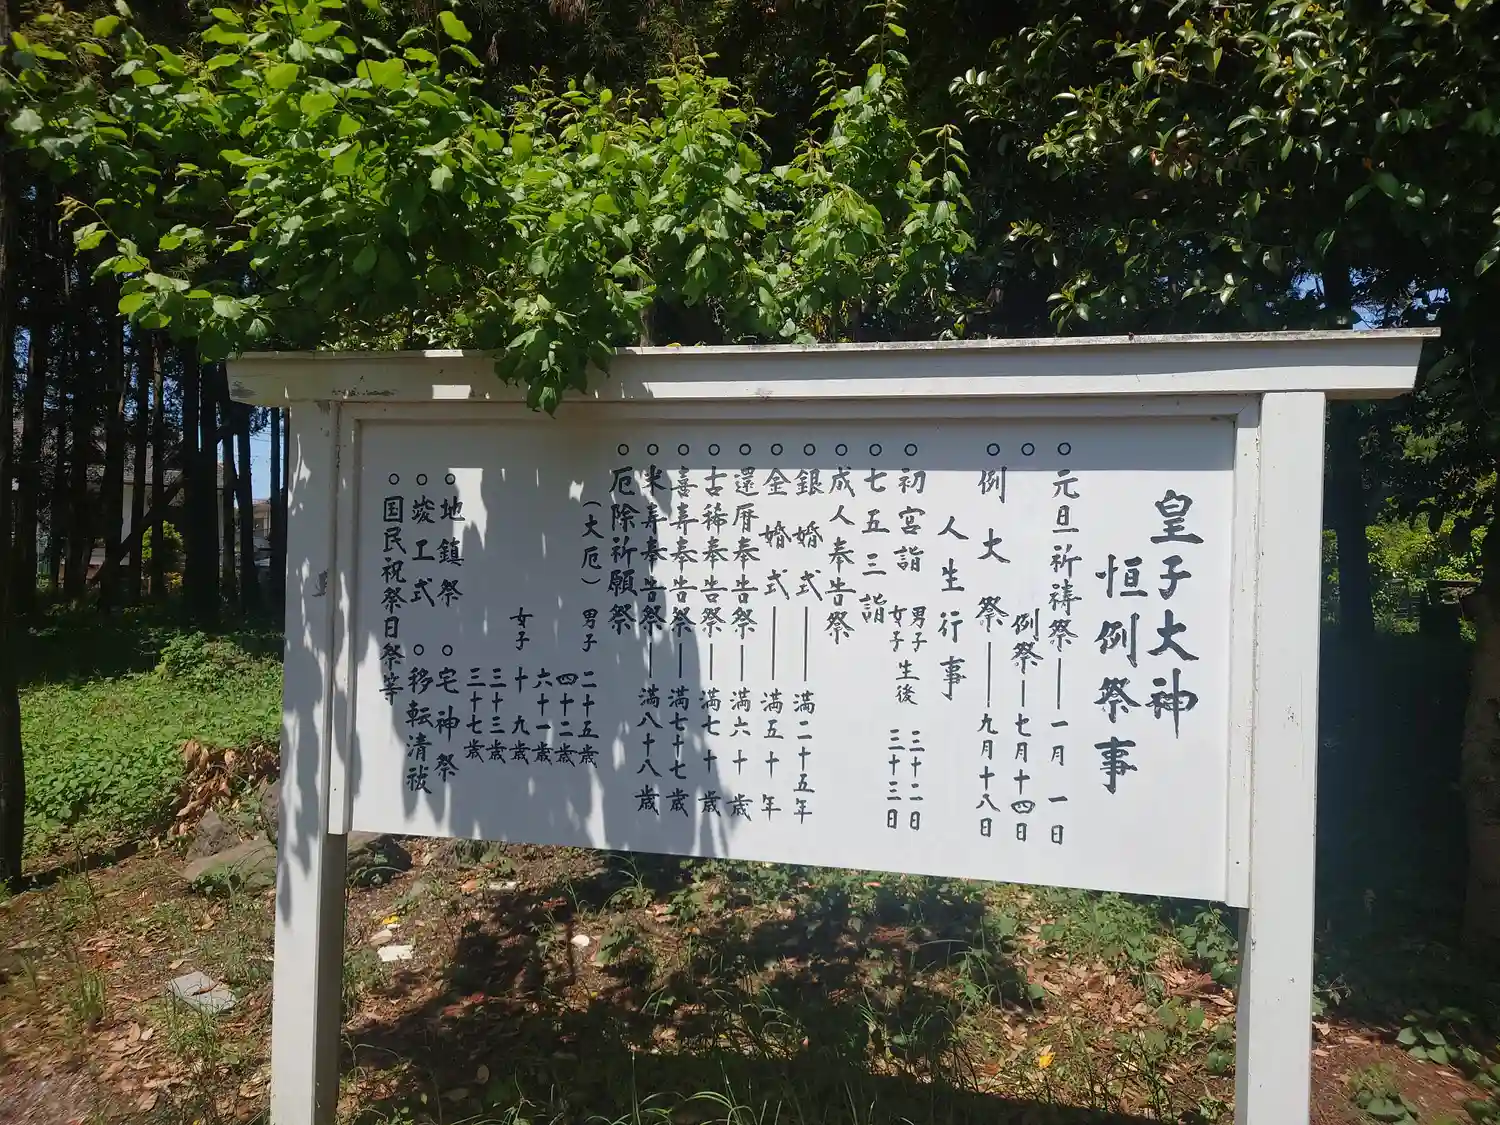 皇子大神
恒例祭事
○元旦祈祷祭―一月一日
○例祭―七月十四日
○例大祭―九月十八日
人生行事
○初宮詣 男子 生後 三十二日
女子 三十三日
○七五三詣
○成人奉告祭
○銀婚式―満二十五年
○金婚式―満五十年
○還暦奉告祭―満六十歳
○古稀奉告祭―満七十歳
○喜寿奉告祭―満七十七歳
○米寿奉告祭―満八十八歳
○厄除祈願祭
(大厄) 男子 二十五歳
四十二歳
六十一歳
女子 十九歳
三十三歳
三十七歳
○地鎮祭 ○宅神祭
○竣工式 ○移転清祓
○国民祝祭日祭等